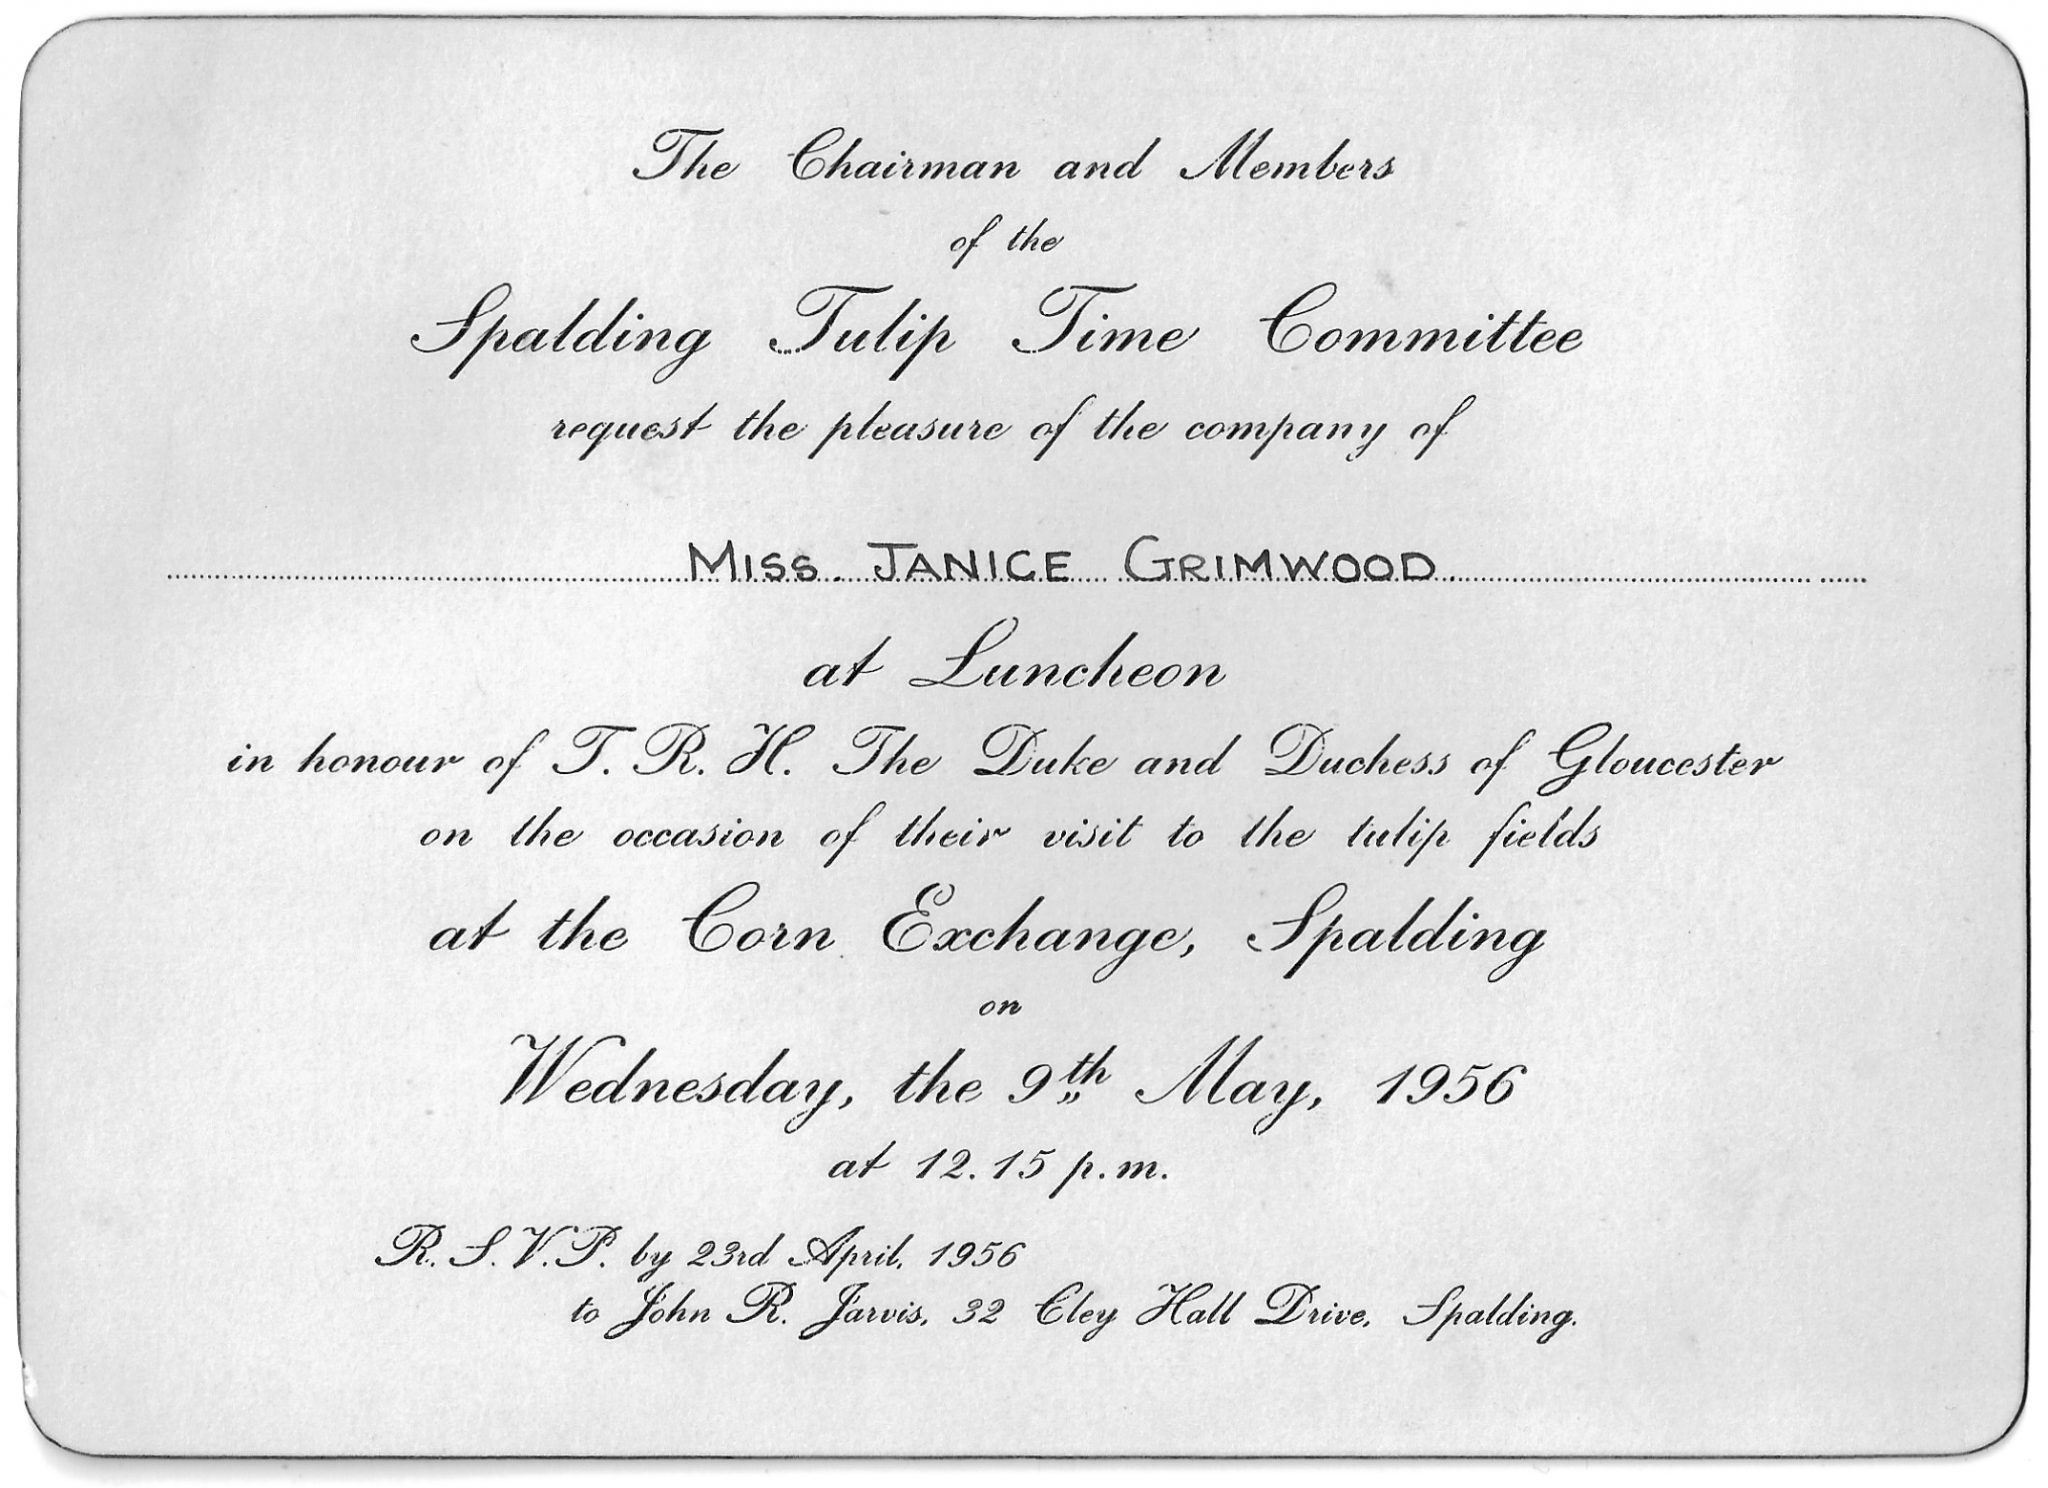 The Chairman and Members
of the
Spalding Tulip Time Committee
request the pleasure of the company of
MISS. JANICE GRIMWOOD
at Luncheon
in honour of T. R. H. The Duke and Duchess of Gloucester
on the occasion of their visit to the tulip fields
at the Corn Exchange, Spalding
on
Wednesday, the 9th May, 1956
at 12.15 p.m.
R. S. V. P. by 23rd April, 1956
to John R. Jarvis, 32 Cley Hall Drive, Spalding.